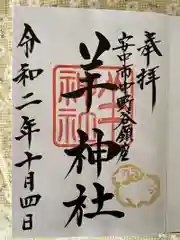 奉拝
安中市中野谷鎮座
羊神社
令和二年十月四日